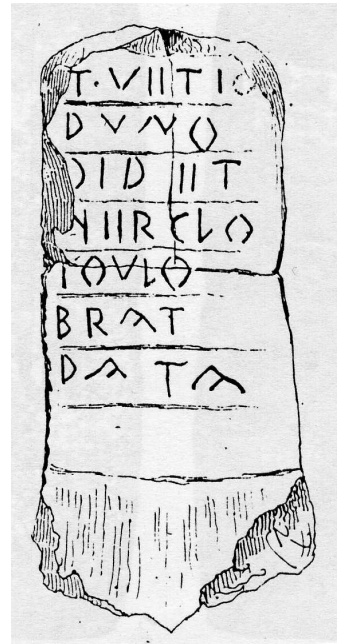 T·VIITIO
DVNO
DIDIIT
HIIRCLO
IOVLO
BRAT
DATA